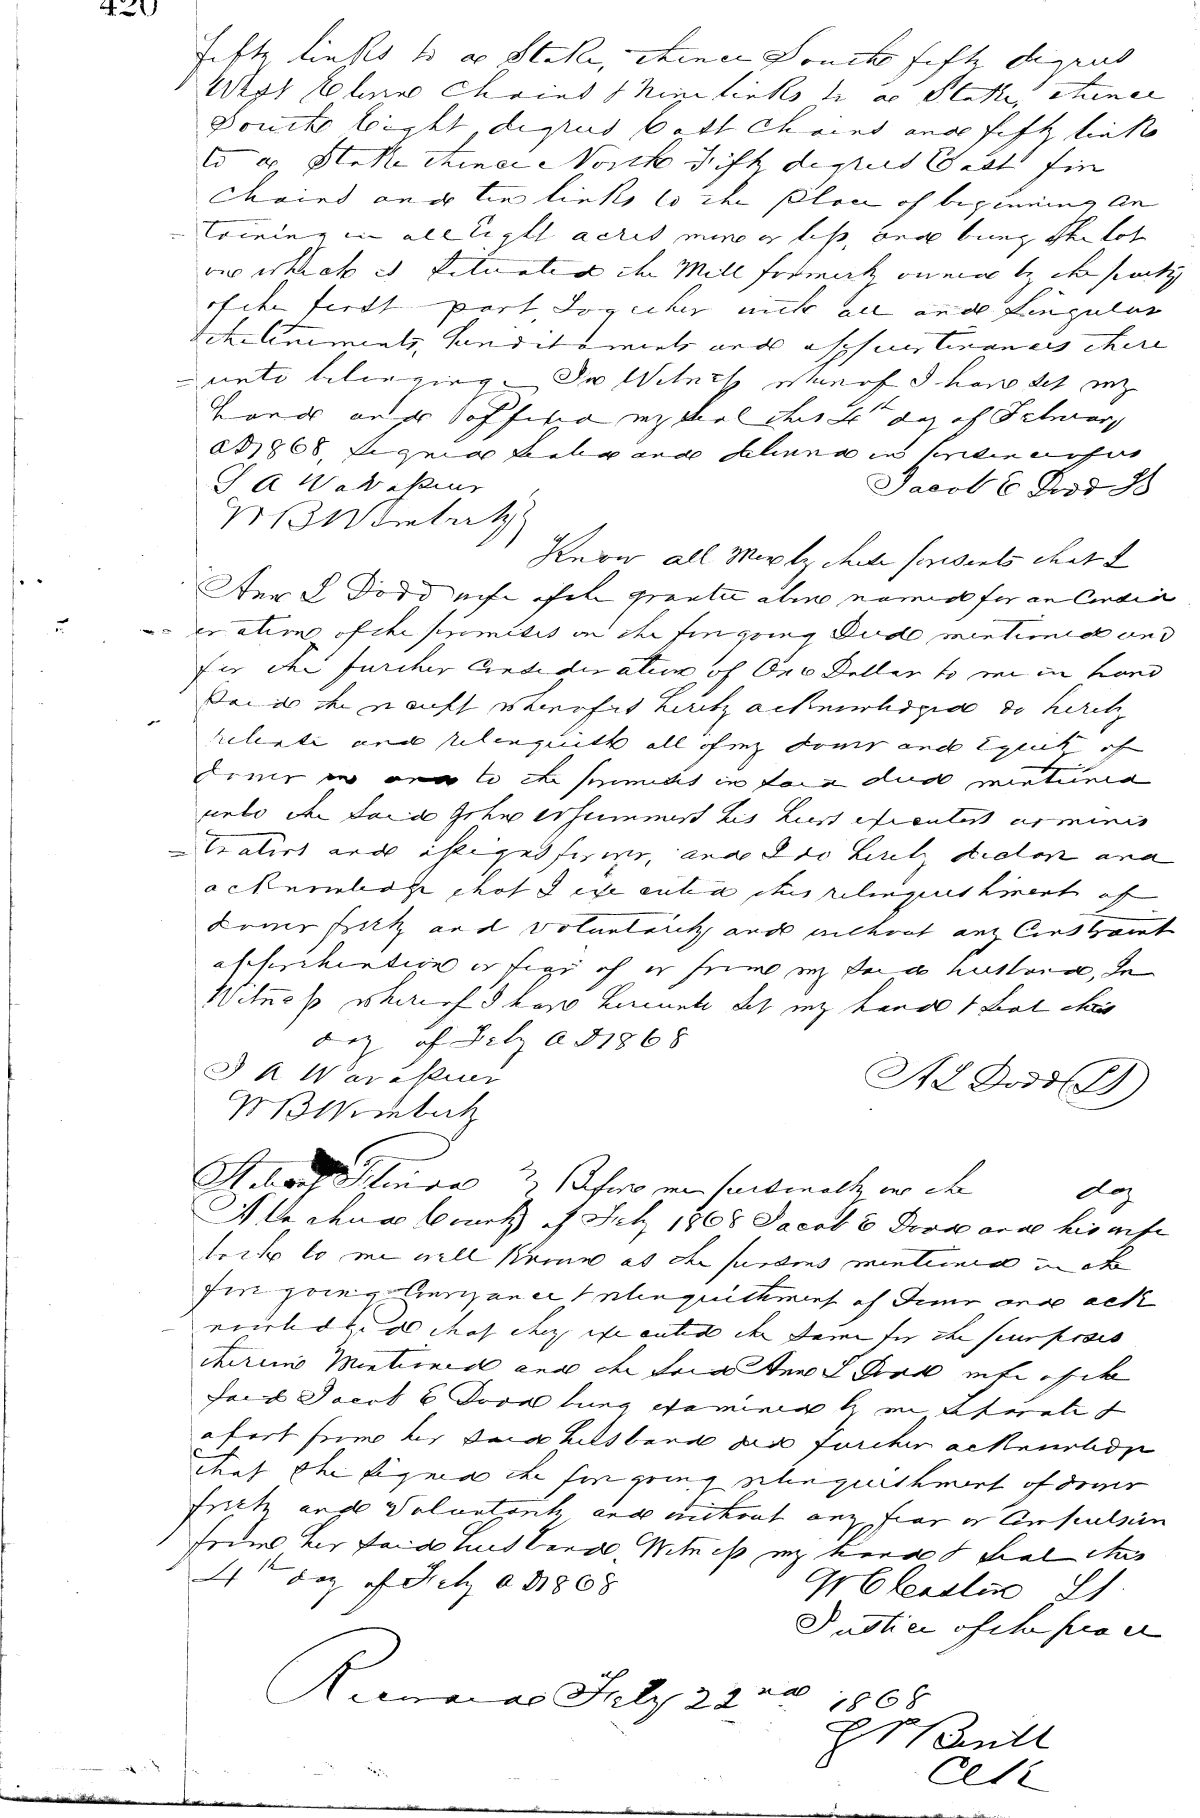 420
fifty links to a Stake, thence South fifty degrees
West Eleven Chains & Nine links to a Stake, thence
South Eight degrees East Chains and fifty links
to a Stake thence North Fifty degrees East five
Chains and ten links to the place of beginning Con
= taining in all Eight acres more or less, and being the lot
on which is Situated the Mill formerly owned by the party
of the first part, Together with all and Singular
the tenements, hereditaments and appurtenances there
= unto belonging. In Witness whereof I have set my
hand and affixed my seal this 4th day of February
AD 1868, Signed Sealed and delivered in presence of us
Jacob E Dodd
W B Wimberly
Know all Men by these presents that I
Ann L Dodd wife of the grantee above named for an Consid
= eration of the premises in the foregoing Deed mentioned and
for the further Consideration of One Dollar to me in hand
paid the receipt whereof is hereby acknowledged do hereby
release and relinquish all of my dower and Equity of
dower in and to the premises in said deed mentioned
unto the said John his heirs executors adminis
= trators and assigns forever, and I do hereby declare and
acknowledge that I executed this relinquishment of
dower freely and voluntarily and without any Constraint
apprehension or fear of or from my said husband, In
Witness whereof I have hereunto set my hand & seal this
day of Feby AD 1868
A L Dodd
W B Wimberly
State of Florida } Before me personally on the day
Alachua County of Feby 1868 Jacob E Dodd and his wife
both to me well Known as the persons mentioned in the
foregoing Conveyance & relinquishment of Dower and ack
nowledged that they executed the same for the purposes
therein Mentioned and the said Ann L Dodd wife of the
said Jacob E Dodd being examined by me separate &
apart from her said husband did further acknowledge
that she signed the foregoing relinquishment of dower
freely and Voluntarily and without any fear or Compulsion
from her said husband, Witness my hand & seal this
4th day of Feby AD 1868
Justice of the peace
Recorded July 22nd 1868
Clk